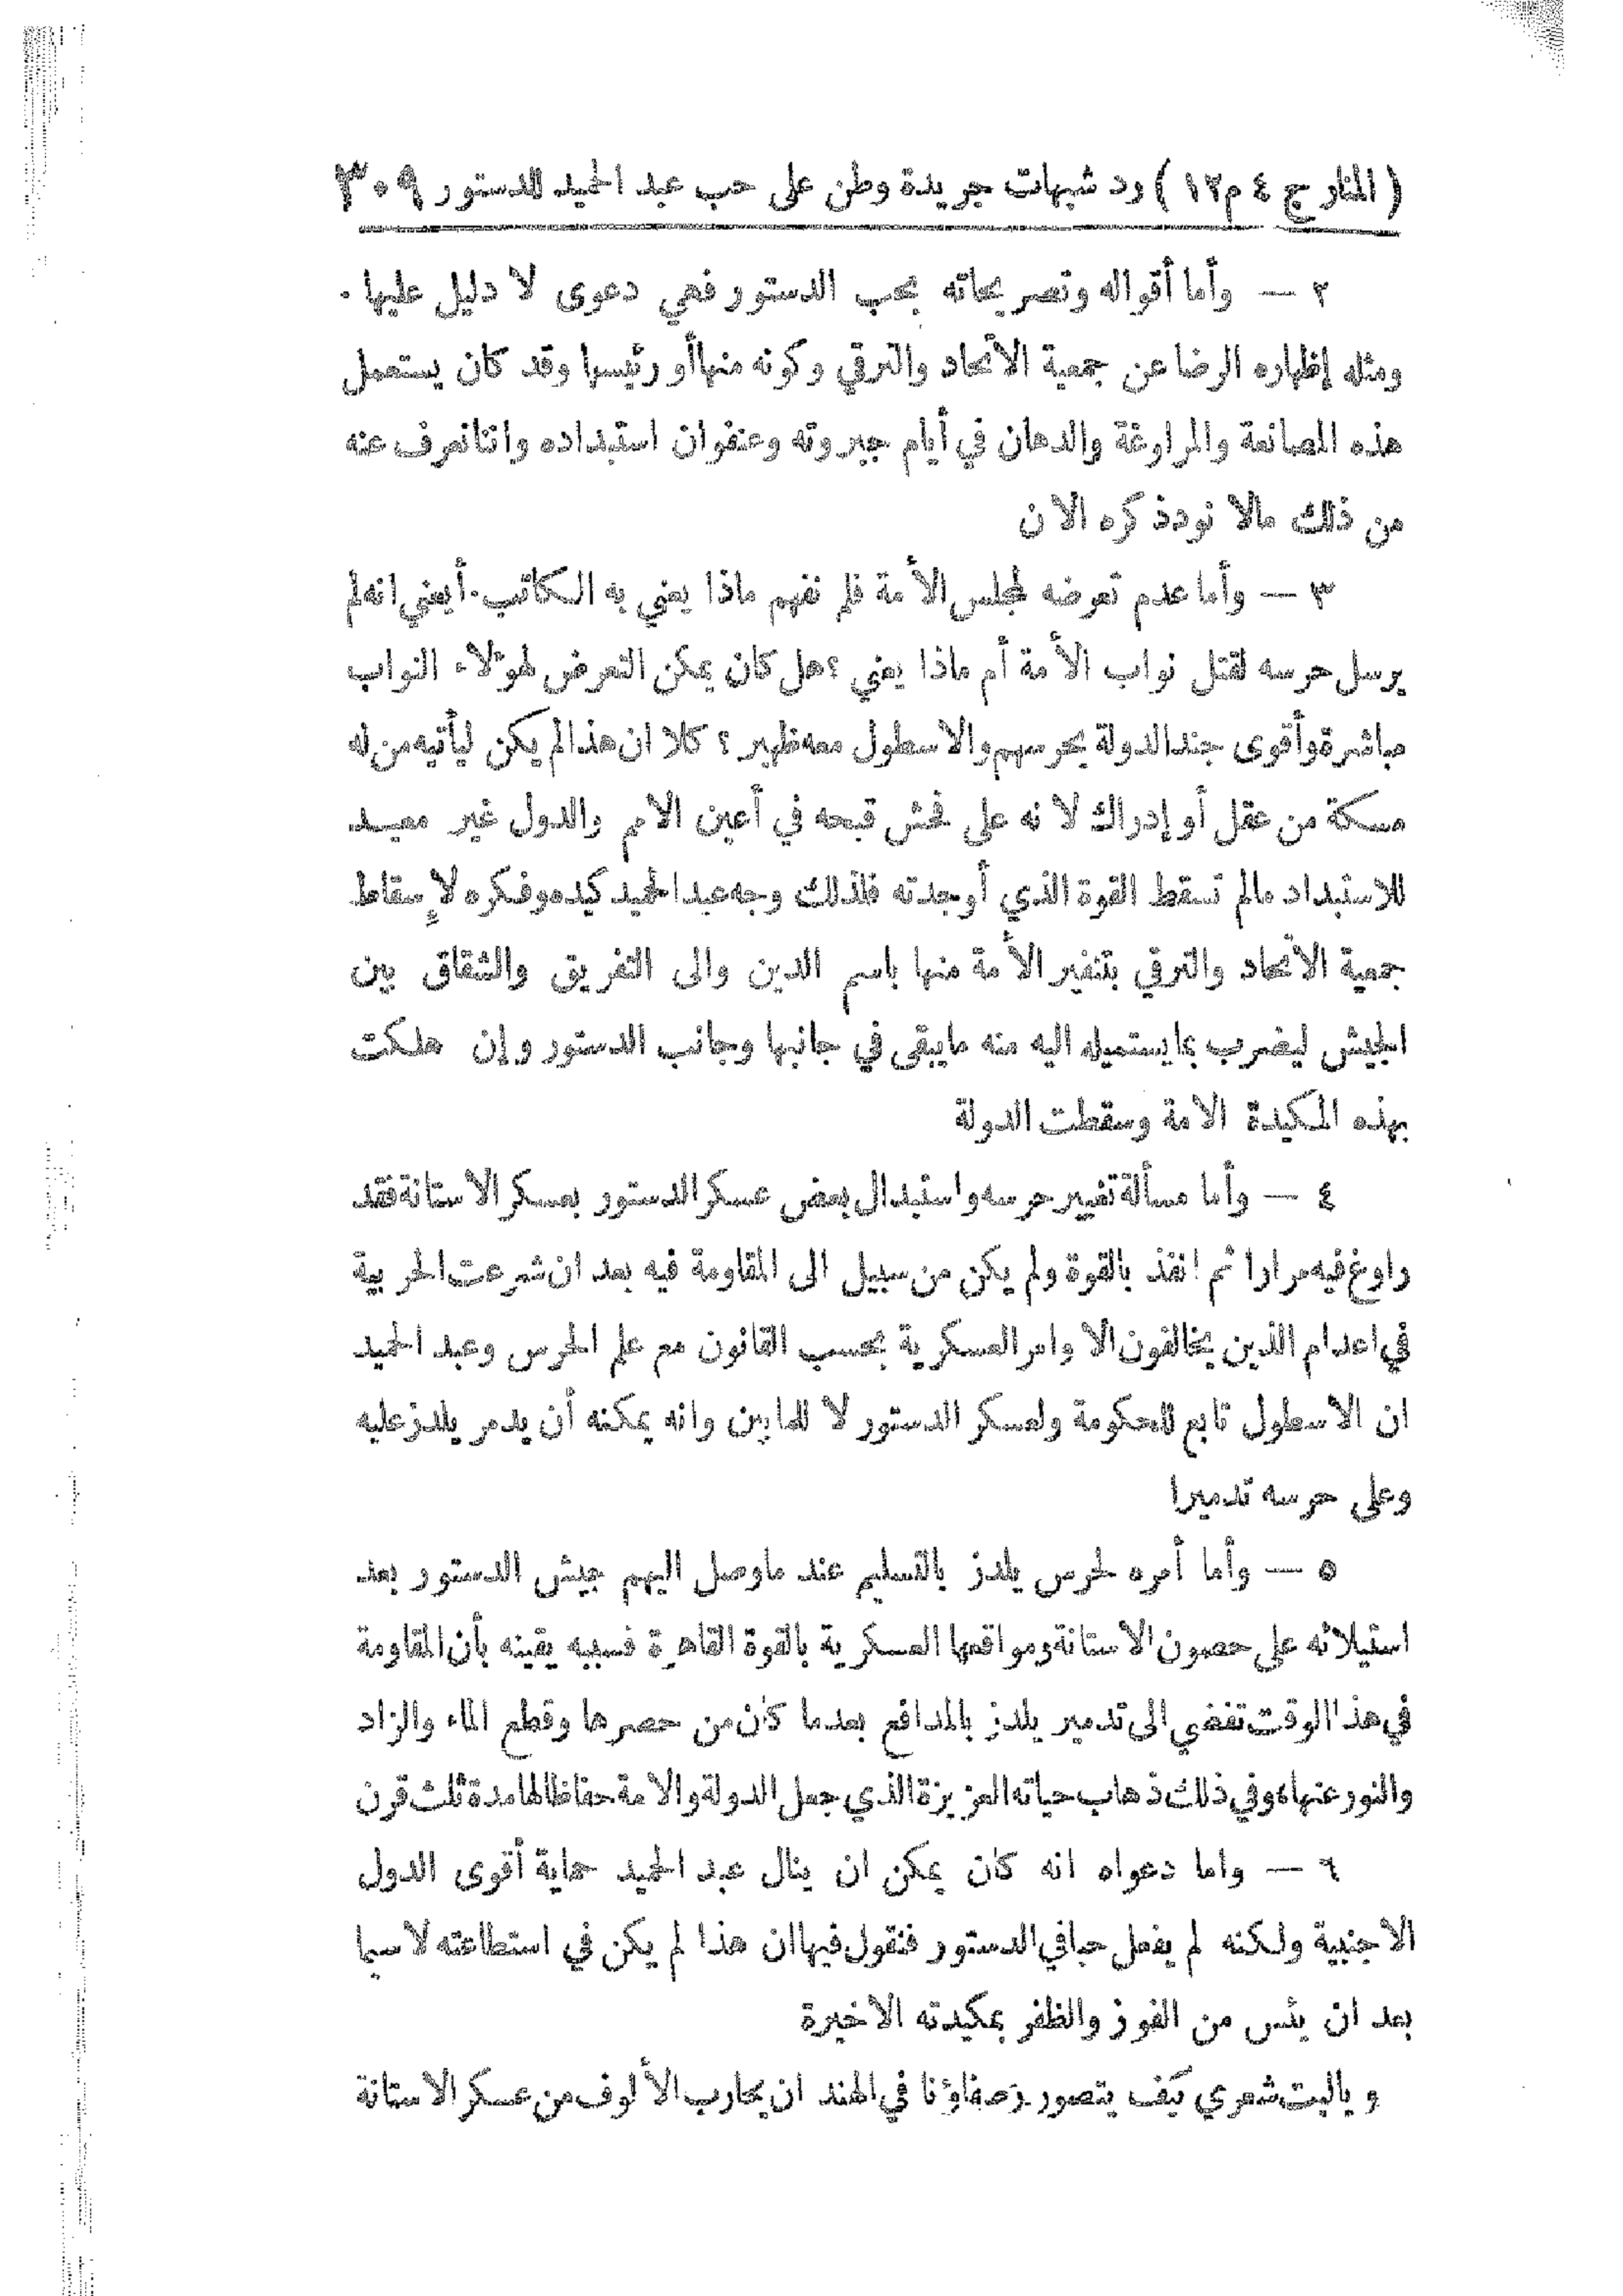 ( المنار ج ٤ م ١٢ ) رد شبهات جريدة وطن على حب عبد الحميد للدستور ٣٠٩
٢ — وأما أقواله وتصريحاته بحب الدستور فهي دعوى لا دليل عليها .
ومثله إظهاره الرضا عن جمعية الاتحاد والترقي وكونه منها أو رئيسها وقد كان يستعمل
هذه المصانعة والمراوغة والدهان في أيام جبروته وعنفوان استبداده واننا نعرف عنه
من ذلك مالا نود ذكره الآن
٣ — وأما عدم تعرضه لمجلس الأمة فلم نفهم ماذا يعني به الكاتب . أيعني انه لم
يرسل حرسه لقتل نواب الأمة أم ماذا يعني ؟ هل كان يمكن التعرض لهؤلاء النواب
مباشرة وأقوى جند الدولة يحرسهم والاسطول معه ظهير ؟ كلا ان هذا لم يكن ليأتيه من له
مسكة من عقل أو إدراك لانه على فحش قبحه في أعين الامم والدول غير معيد
للاستبداد مالم تسقط القوة الذي أوجدته فلذلك وجه عبد الحميد كيده وفكره لإسقاط
جمعية الاتحاد والترقي بتنفير الأمة منها باسم الدين والى التفريق والشقاق بين
الجيش ليضرب بما يستميله اليه منه مايبقى في جانبها وجانب الدستور وإن هلكت
بهذه المكيدة الامة وسقطت الدولة
٤ — وأما مسألة تغيير حرسه واستبدال بعض عسكر الدستور بعسكر الاستانة فقد
راوغ فيه مرارا ثم انفذ بالقوة ولم يكن من سبيل الى المقاومة فيه بعد ان شرعت الحربية
في اعدام الذين يخالفون الاوامر العسكرية بحسب القانون مع علم الحرس وعبد الحميد
ان الاسطول تابع للحكومة ولعسكر الدستور لا للمابين وانه يمكنه أن يدمر يلدز عليه
وعلى حرسه تدميرا
٥ — وأما أمره لحرس يلدز بالتسليم عند ماوصل اليهم جيش الدستور بعد
استيلائه على حصون الاستانة ومواقعها العسكرية بالقوة القاهرة فسببه يقينه بأن المقاومة
في هذا الوقت تفضي الى تدمير يلدز بالمدافع بعدما كان من حصرها وقطع الماء والزاد
والنور عنها ، وفي ذلك ذهاب حياته العزيزة الذي جعل الدولة والامة حفاظا لها مدة ثلث قرن
٦ — واما دعواه انه كان يمكن ان ينال عبد الحميد حماية أقوى الدول
الاجنبية ولكنه لم يفعل حبا في الدستور فنقول فيها ان هذا لم يكن في استطاعته لا سيما
بعد ان يئس من الفوز والظفر بمكيدته الاخيرة
و ياليت شعري كيف يتصور رصفاؤنا في الهند ان يحارب الألوف من عسكر الاستانة